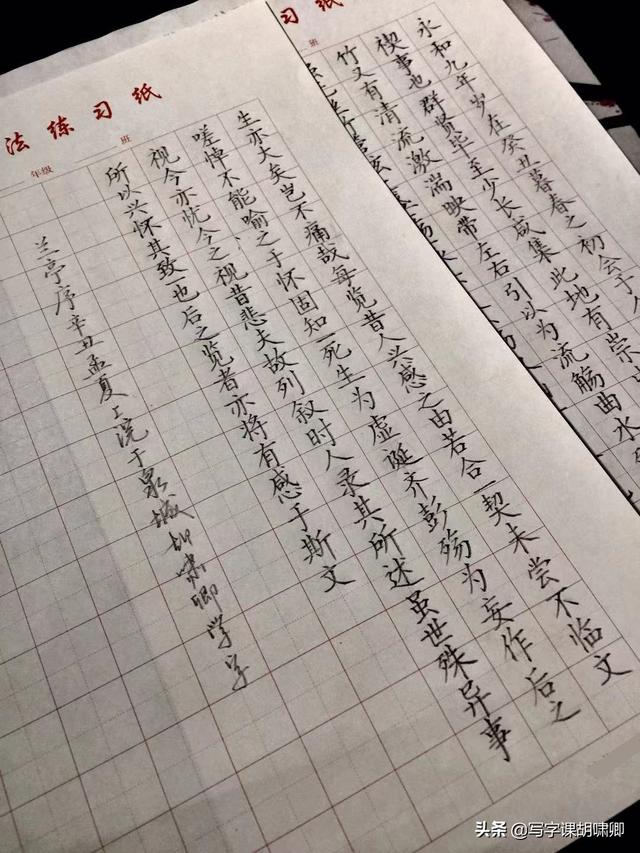 习纸
班
永和九年岁在癸丑暮春之初会于
禊事也群贤毕至少长咸集此地有崇
竹又有清流激湍映带左右引以为流觞曲水
法练习纸
年级 班
生亦大矣岂不痛哉每览昔人兴感之由若合一契未尝不临文
嗟悼不能喻之于怀固知一死生为虚诞齐彭殇为妄作后之
视今亦忧今之视昔悲夫故列叙时人录其所述虽世殊异事
所以兴怀其致也后之览者亦将有感于斯文
兰亭序辛丑孟夏上浣于泉城胡啸卿学字
头条 @写字课胡啸卿